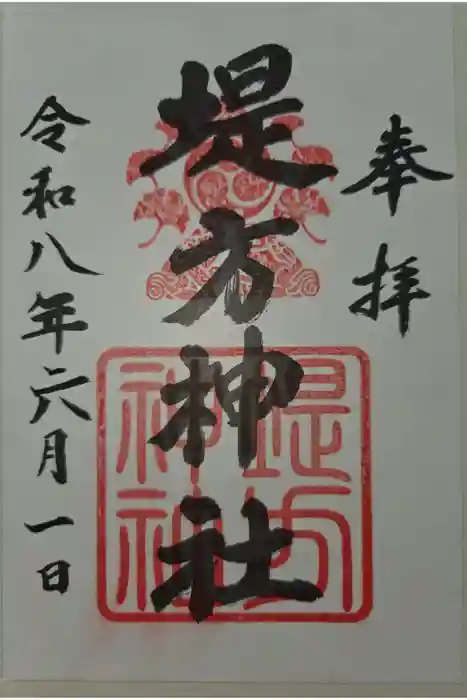 奉拝
堤方神社
令和八年六月一日
堤方
神社